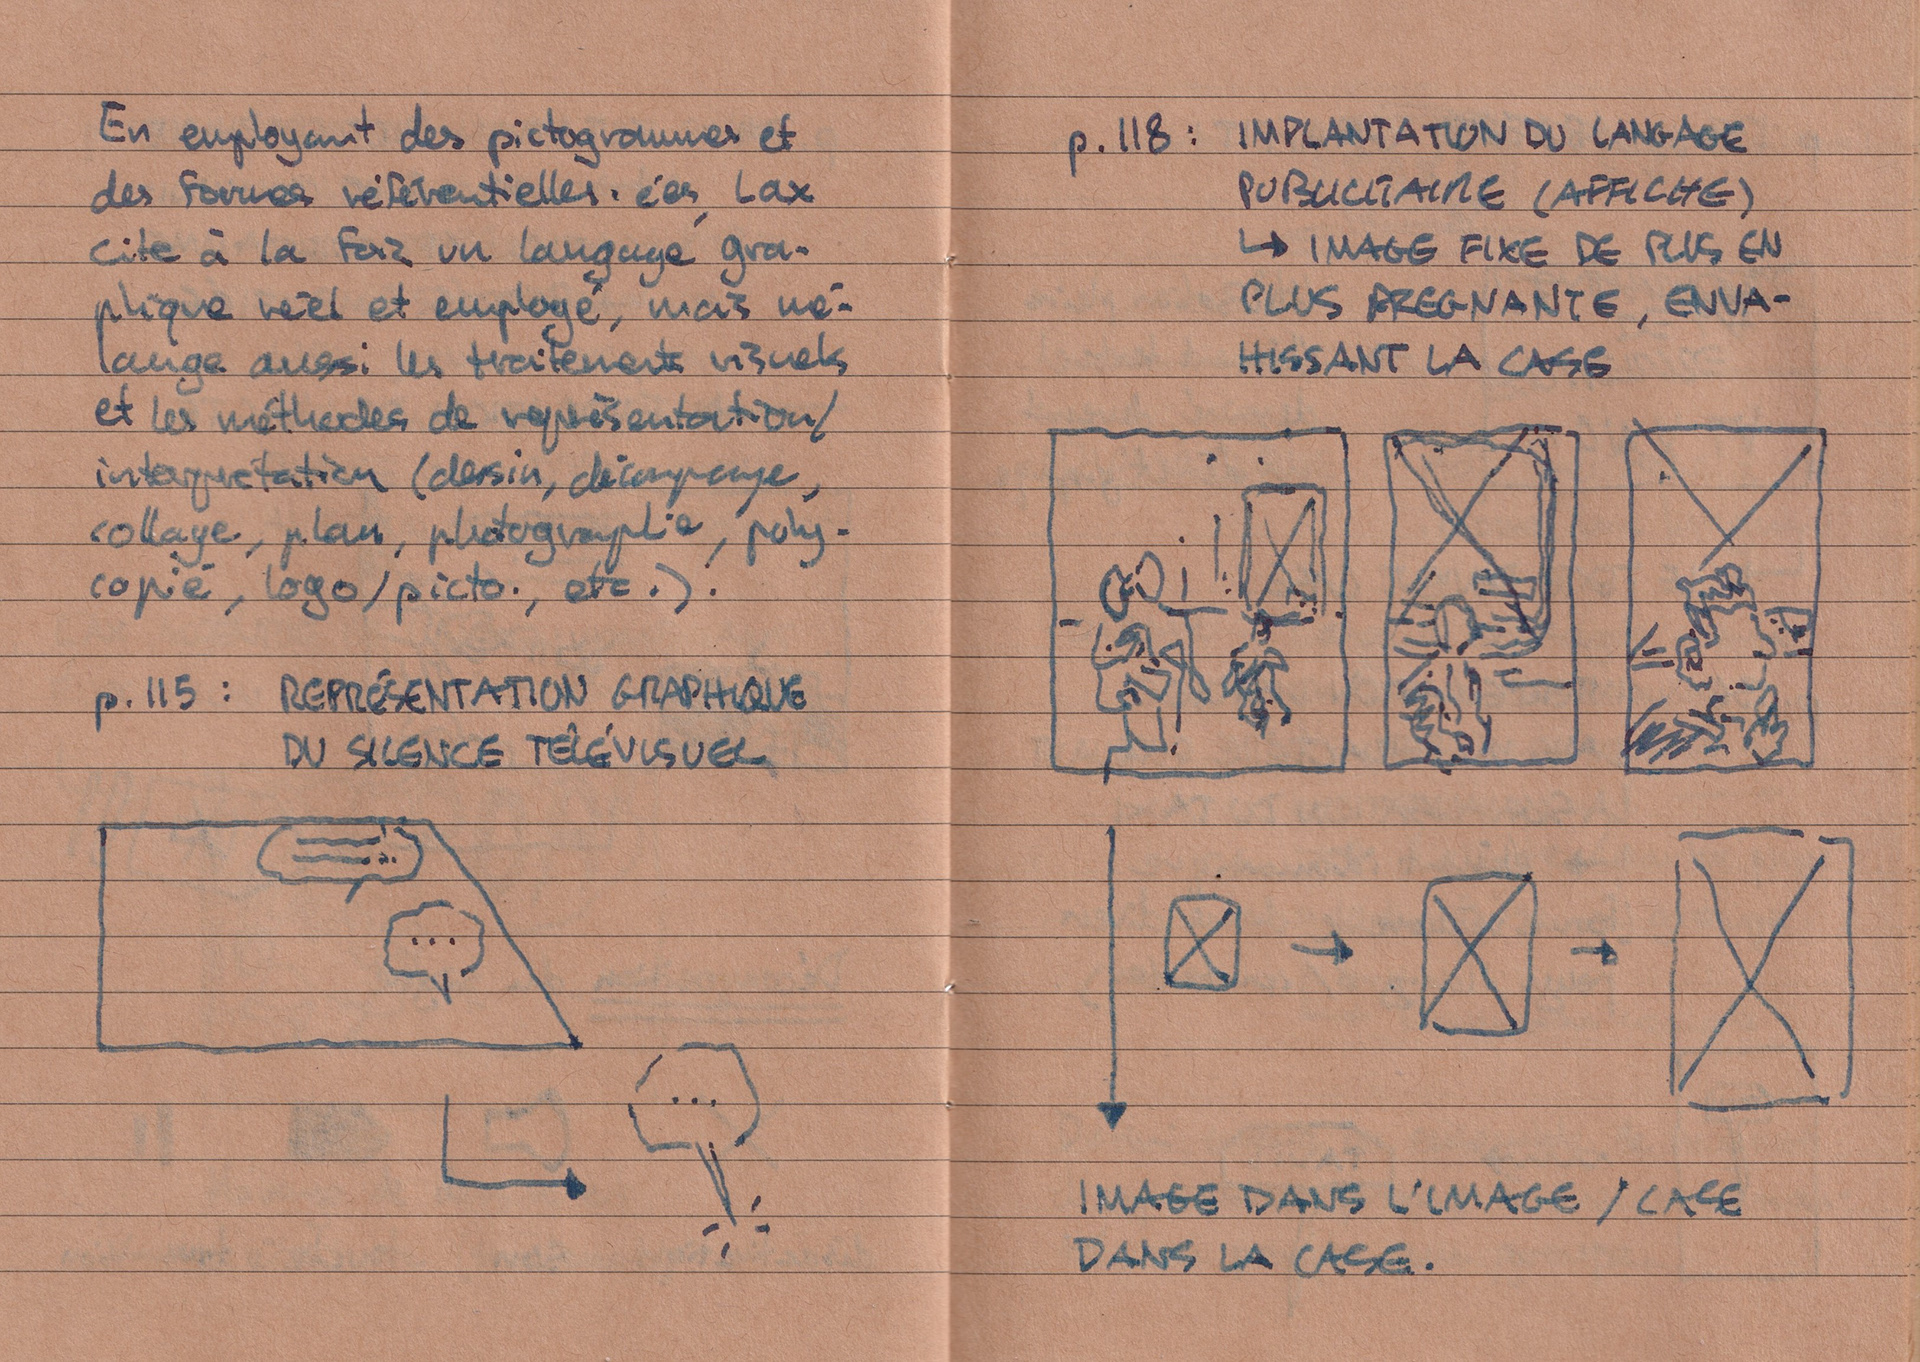 En employant des pictogrammes et
des formes référentielles·ées, Lax
cite à la fois un langage gra-
phique réel et employé, mais mé-
lange aussi les traitements visuels
et les méthodes de représentation/
interprétation (dessin, découpage,
collage, plan, photographie, poly-
copié, logo/picto., etc.).
p.115 : REPRÉSENTATION GRAPHIQUE
DU SILENCE TÉLÉVISUEL
...
...
p.118 : IMPLANTATION DU LANGAGE
PUBLICITAIRE (AFFICHE)
↳ IMAGE FIXE DE PLUS EN
PLUS PREGNANTE, ENVA-
HISSANT LA CASE
IMAGE DANS L'IMAGE / CASE
DANS LA CASE.